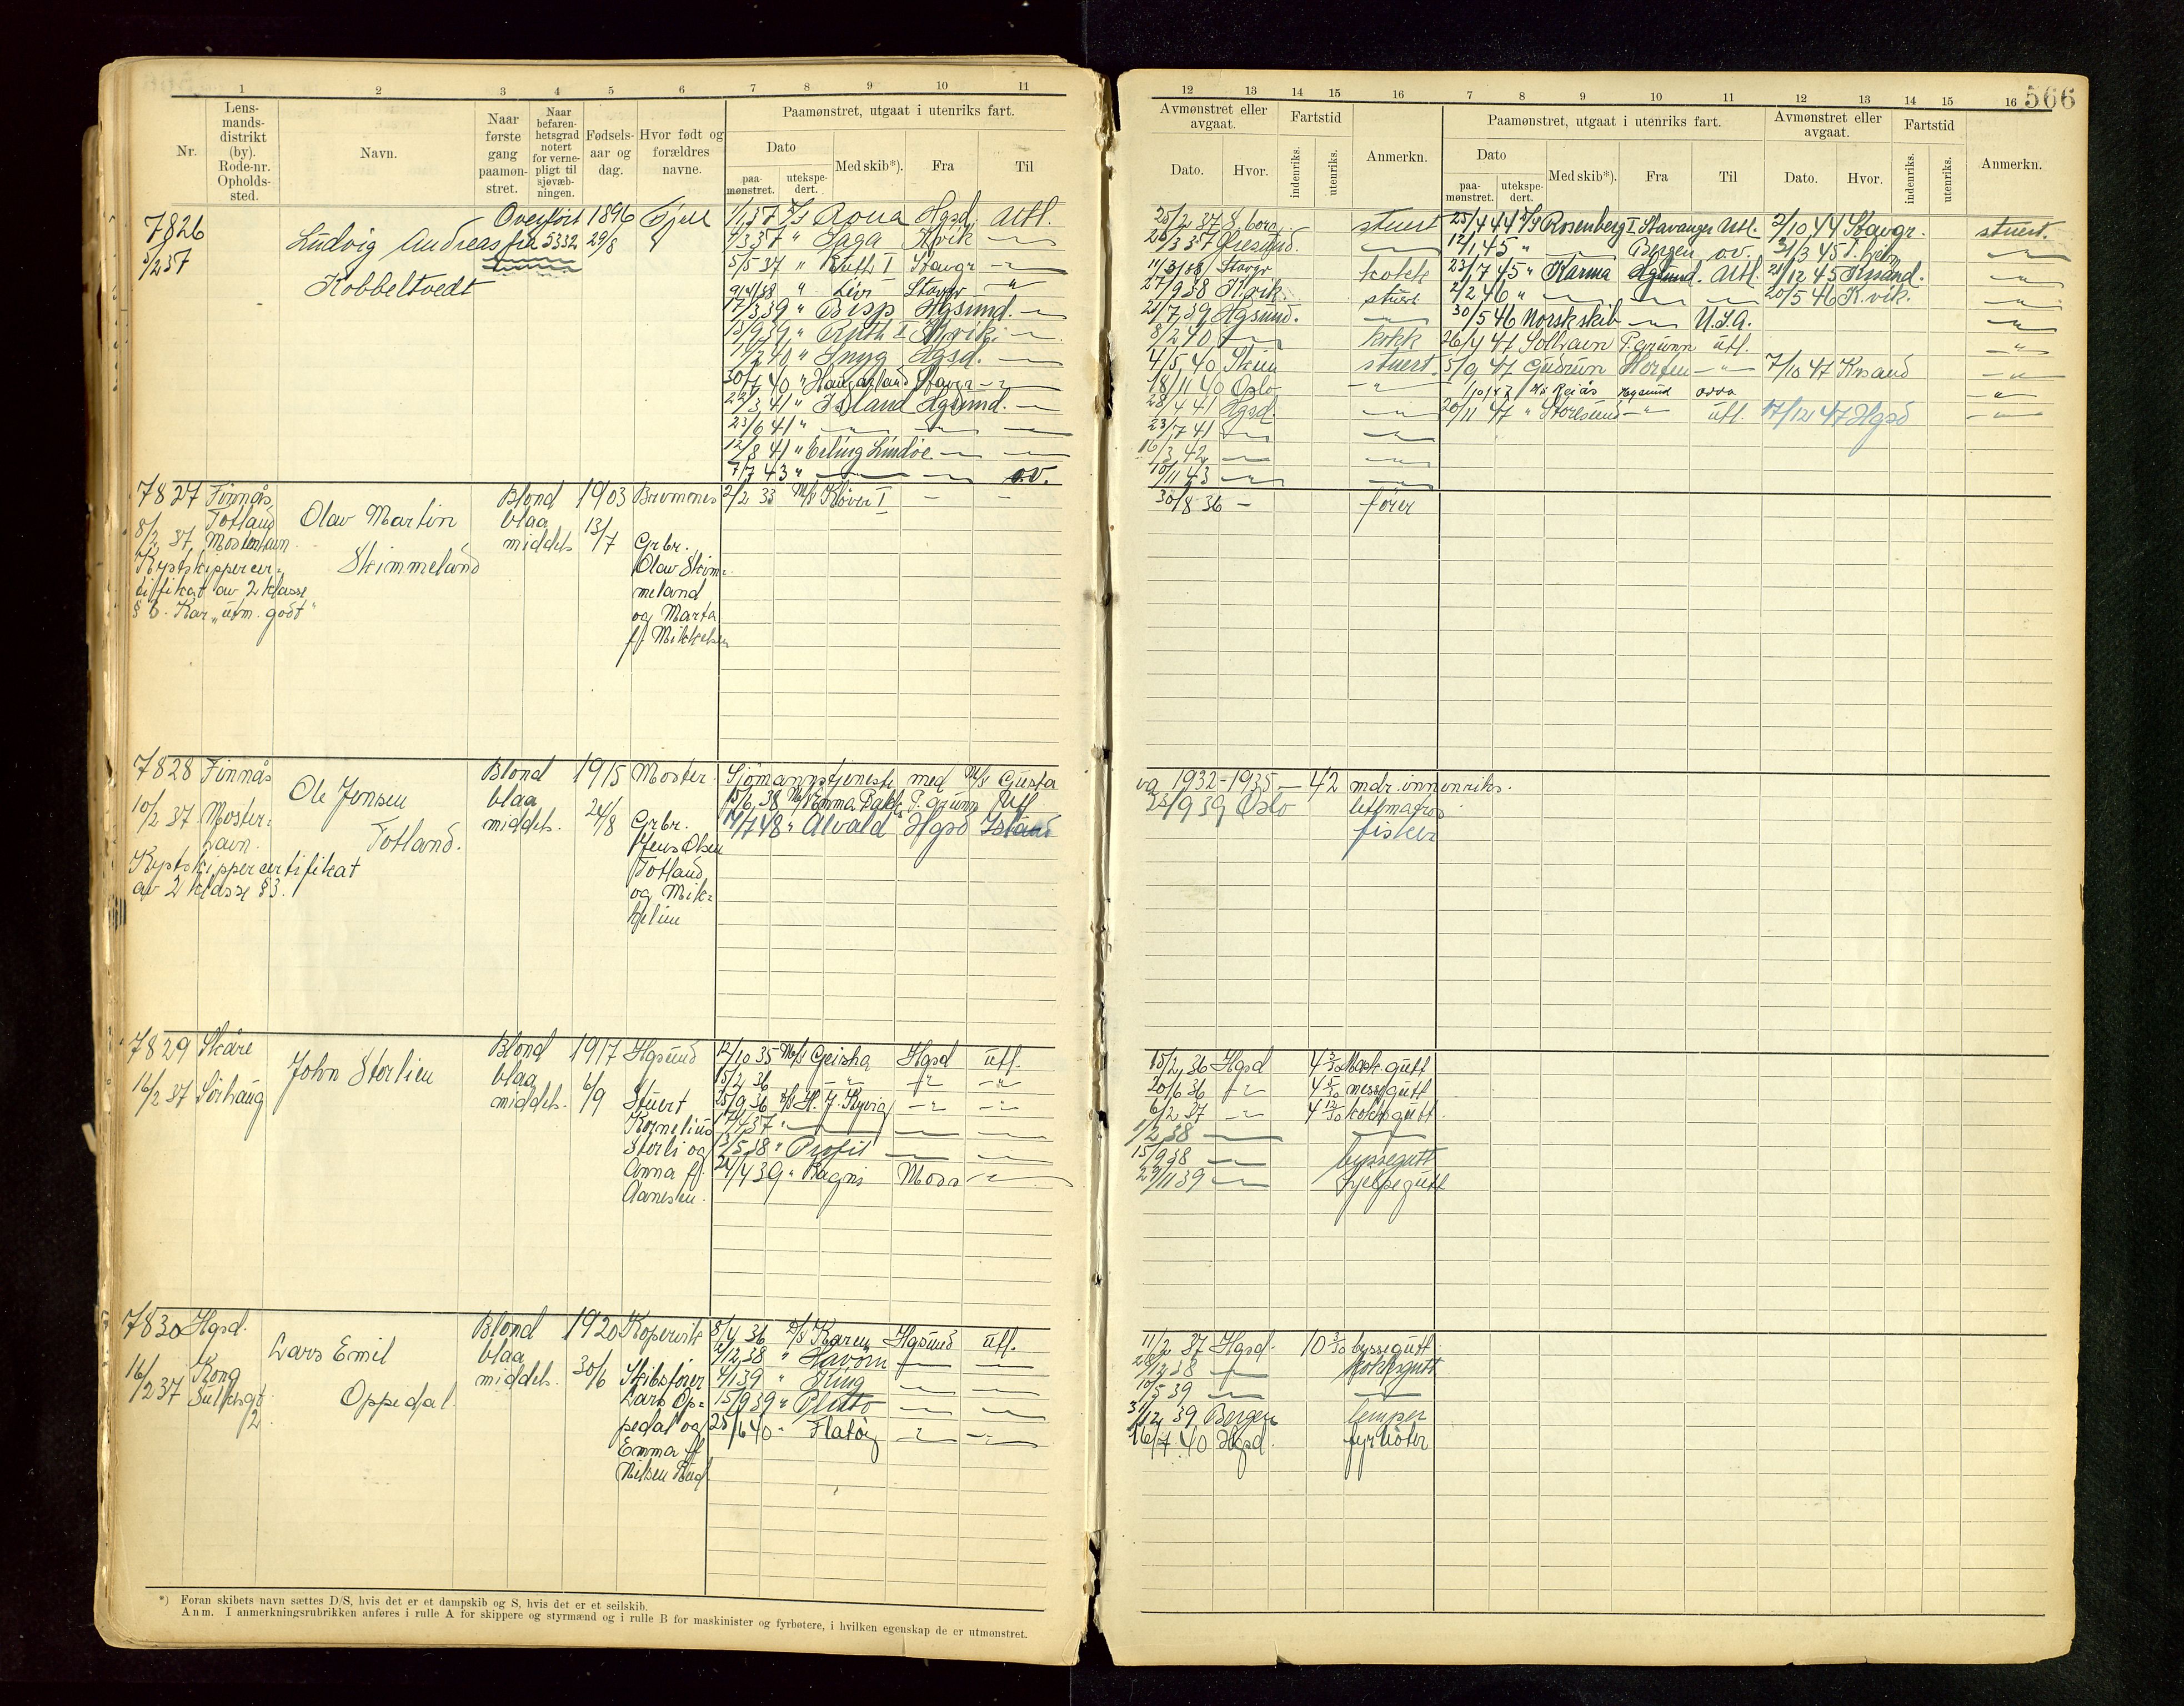 1 2 3 4 5 6 7 8 9 10 11
Nr.
Lens-
mands-
distrikt
(by).
Rode-nr.
Opholds-
sted.
Navn.
Naar
første
gang
paamøn-
stret.
Naar
befaren-
hetsgrad
notert
for verne-
pligt til
sjøvæb-
ningen.
Fødsels-
aar og
dag.
Hvor født og
forældres
navne.
Paamønstret, utgaat i utenriks fart.
Dato
paa-
mønstret.
utekspe-
dert.
Med skib*).
Fra
Til
7826
5/2 37
Ludvig Andreas
Kobbeltvedt
Overført
fra 5332
1896
29/8
Fjell
1/1 37 D/S Rona Hgsd. Utl.
4/3 37 " Saga Kvik
5/5 37 " Ruth I Stavgr
9/4 38 " Stavgr
17/3 39 " Bisp Hgsund.
15/9 39 " Ruth I
14/2 40 " Snyg Hgsd.
30/7 40 " Haugarland Stavgr
22/3 41 " Island Hgsund.
23/6 41 "
12/8 41 " Erling Lindøe
7/7 43 " ov.
7827 Finnås,
Totland
8/2 37, Mosterhavn
Kystskippercer-
tifikat av 2 klasse
§ 3. Kar. "utm. godt"
Olav Martin
Skimmeland
Blond
blaa
middels
1903
13/7
Bremnes
Grbr.
Olav Skim-
meland
og Marta
f. Mikkelsen
2/2 33 M/S Kløver I
7828 Finnås
10/2 37 Moster-
havn.
Kystskippercertifikat
av 2 klasse § 3.
Ole Jensen
Totland.
Blond
blaa
middels.
1915
24/8
Moster.
Grbr.
Jens Olsen
Totland
og Mik-
keline
Sjömannstjeneste med M/S Gusta
15/6 38 M/S Emma Bakke P. grunn Utl
14/7 48 " Alvald Hgsd Island
7829 Skåre
16/2 37 Sörhaug
John Storlien
Blond
blaa
middels.
1917
6/9
Hgsund
Stuert
Kornelius
Storli og
Anna f.
Aanesen.
12/10 35 M/S Geisha Hgsd utl.
15/2 36
25/9 36 D/S H. J. Kyvig
17/4 37 "
13/5 38 " Profit
24/4 39 " Ragni Moss
7830 Hgsd.
16/2 37
Kong
Sulfsgt
2.
Lars Emil
Oppedal.
Blond
blaa
middels.
1920
30/6
Kopervik
Skibsfører
Lars Op-
pedal og
Emma f.
Nilsen
8/4 36 D/S Karen Hgsund utl.
2/12 38 " Havörn
4/1 39 " King
15/9 39 " Pluto
25/6 40 " Flatöy
*) Foran skibets navn sættes D/S, hvis det er et dampskib og S, hvis det er et seilskib.
Anm. I anmerkningsrubrikken anføres i rulle A for skippere og styrmænd og i rulle B for maskinister og fyrbøtere, i hvilken egenskap de er utmønstret.
566
12 13 14 15 16 7 8 9 10 11 12 13 14 15 16
Avmønstret eller
avgaat.
Dato. Hvor.
Fartstid
indenriks. utenriks.
Anmerkn.
Paamønstret, utgaat i utenriks fart.
Dato
paa-
mønstret.
utekspe-
dert.
Med skib*). Fra Til
Avmønstret eller
avgaat.
Dato. Hvor.
Fartstid
indenriks. utenriks.
Anmerkn.
25/2 37 S.borg. stuert 25/4 44 D/S Rosenberg I Stavanger Utl. 2/10 44 Stavgr. stuert.
12/1 45 " Bergen ov. 31/3 45 T.heim
11/3 38 Stavgr kokk 23/7 45 " Karma Hgsund. Utl. 28/12 45 Krsand.
27/9 38 K.vik. stuert 2/2 46 " 20/5 46 K.vik.
21/7 39 Hgsund. 30/5 46 Norsk skib U.S.A.
8/2 40 kokk 26/4 47 Solhavn P. grunn utl.
4/5 40 Skien stuert. 5/9 47 Gudrun Horten 7/10 47 Krsand
18/11 40 Oslo Hgsund
28/4 41 Hgsd. 20/11 47 " Storesund utl. 17/12 47 Hgsd
23/7 41
16/3 42
10/11 43
30/8 36 fører
og 1932-1935 - 42 mdr. innenriks.
25/9 39 Oslo lettmatros
fisker
15/2 36 Hgsd 4 3/30 gutt
20/6 36 4 5/30 messegutt
6/2 37 4 12/30 kokkgutt.
1/2 38
15/9 38 byssegutt
29/11 39 hjelpegutt
11/2 37 Hgsd. 10 3/30 byssegutt
28/12 38 kokkgutt
10/5 39
31/12 39 Bergen lemper
26/7 40 Hgsd. fyrbøter